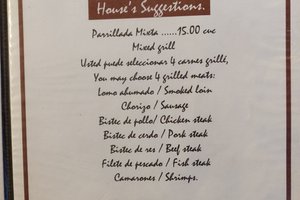 House's Suggestions.
Parrillada Mixta ......15.00 cuc
Mixed grill
Usted puede seleccionar 4 carnes grillé,
You may choose 4 grilled meats:
Lomo ahumado / Smoked loin
Chorizo / Sausage
Bistec de pollo/ Chicken steak
Bistec de cerdo / Pork steak
Bistec de res / Beef steak
Filete de pescado / Fish steak
Camarones / Shrimps.